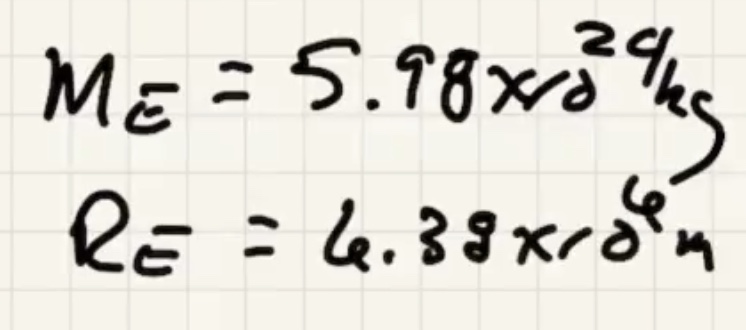 M_E = 5.98x10^24 kg
R_E = 6.38x10^6 m